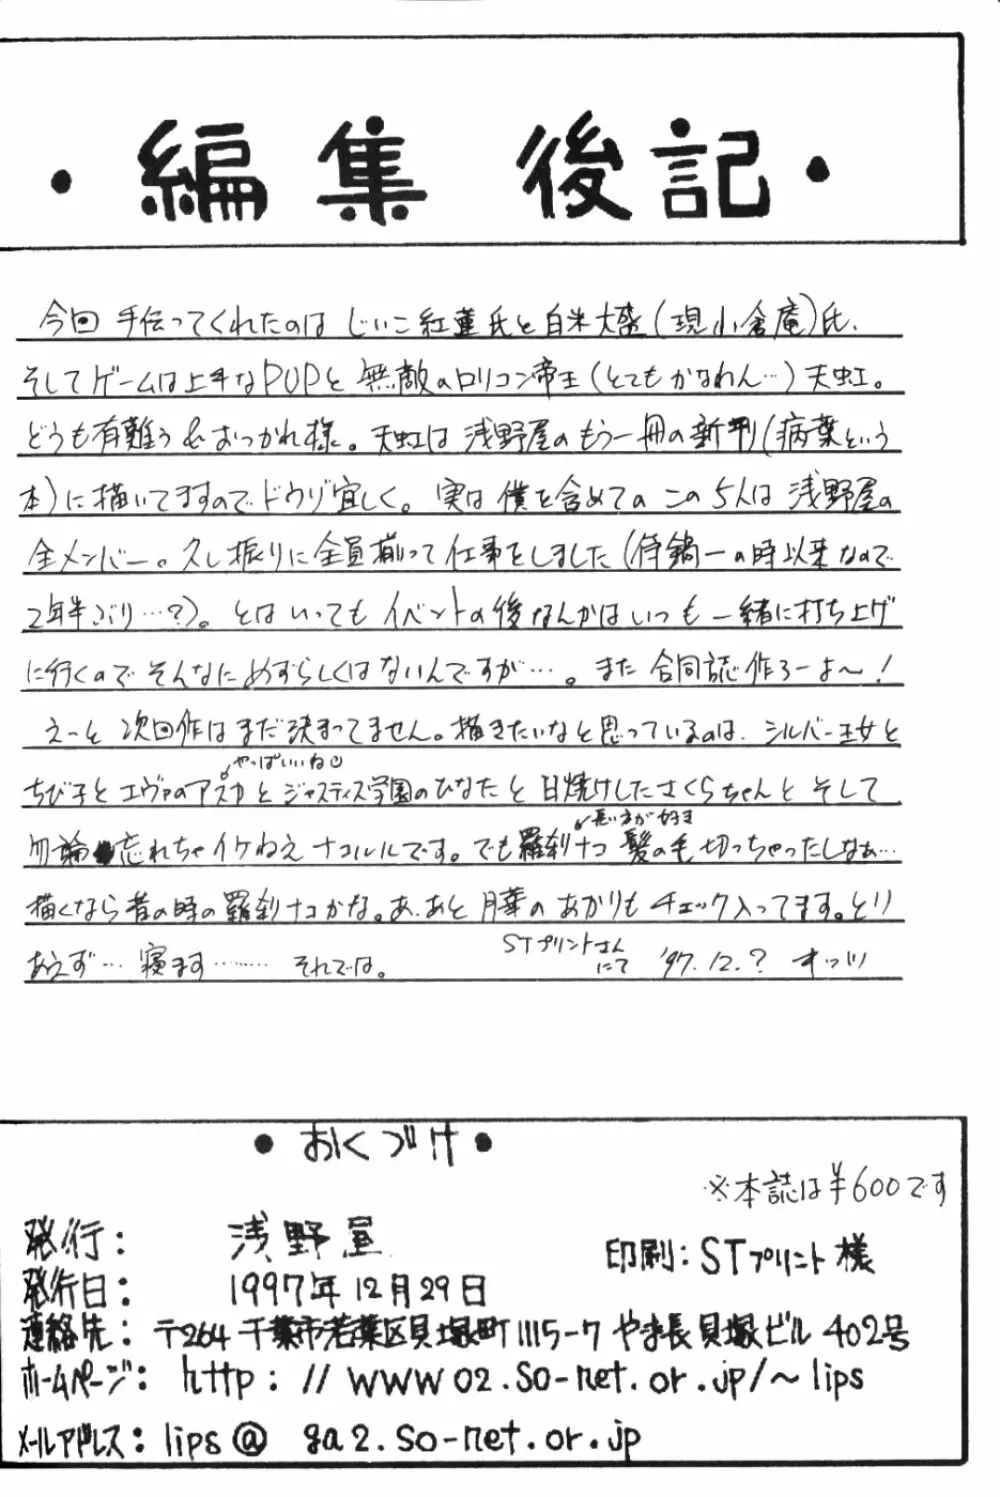 ・編集後記・
今回手伝ってくれたのはじいこ紅蓮氏と白米大盛(現小倉庵)氏、
そしてゲームは上手なPUPと無敵のロリコン帝王(とてもかなわん…)天虹。
どうも有難う&おつかれ様。天虹は浅野屋のもう一冊の新刊(病葉という
本)に描いてますのでドウゾ宜しく。実は僕を含めてのこの5人は浅野屋の
全メンバー。久し振りに全員揃って仕事をしました(侍鍋一の時以来なので
2年半ぶり…?)。とはいってもイベントの後なんかはいつも一緒に打ち上げ
に行くのでそんなにめずらしくはないんですが…。また合同誌作ろーよ〜!
えーと次回作はまだ決まってません。描きたいなと思っているのは、シルバー王女と
やっぱいいね
ちび子とエヴァのアスカとジャスティス学園のひなたと日焼けしたさくらちゃんとそして
長い方が好き
勿論忘れちゃイケねえナコルルです。でも羅刹ナコ髪の毛切っちゃったしなぁ…
描くなら昔の時の羅刹ナコかな。あ、あと月華のあかりもチェック入ってます。とり
あえず…寝ます……… それでは。 STプリントさんにて '97.12.?
・おくづけ・
※本誌は¥600です
発行: 浅野屋
印刷:STプリント様
発行日: 1997年12月29日
連絡先: 〒264 千葉市若葉区貝塚町1115-7 やま長貝塚ビル 402号
ホームページ: http://www02.so-net.or.jp/~lips
メールアドレス: lips@ga2.so-net.or.jp